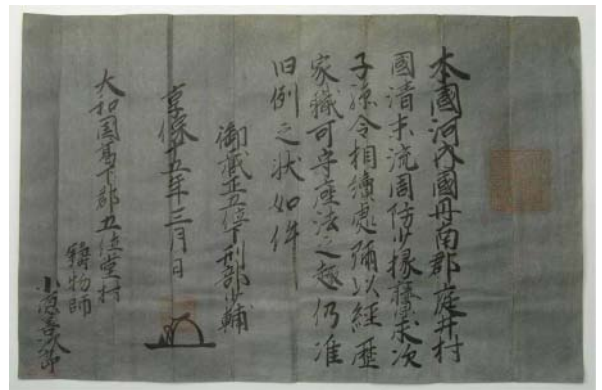 本國河内國丹南郡庭井村
國清末流周防少掾藤求次
子孫令相續處彌以經歴
家職可守座法之趣仍准
旧例之状如件
御蔵正五位下刑部少輔
享保十五年三月日
大和国葛下郡五位堂村
鋳物師
小原喜次郎